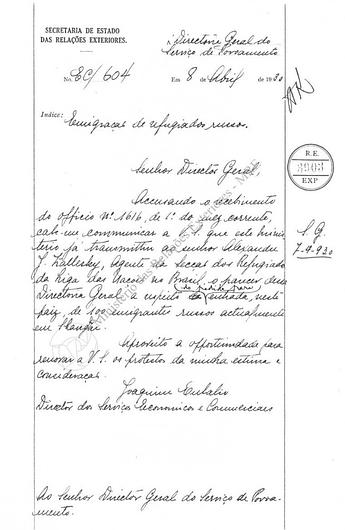 SECRETARIA DE ESTADO
DAS RELAÇÕES EXTERIORES.
Á Directoria Geral do
Serviço de Povoamento
No. EC/604
Em 8 de Abril de 1930
Indice: Emigração de refugiados russos.
R.E.
3903
EXP
Senhor Director Geral,
Accusando o recebimento
do officio nº 1616, de 1º do mez corrente,
cabe-me communicar a V. S. que este Minis-
terio já transmittiu ao senhor Alexandre
agente da Seccão de Refugiados
da Liga das Nações no Brasil, o parecer dessa
Directoria Geral a respeito da entrada, neste
paiz, de emigrantes russos actualmente
em Shangai.
Aproveito a opportunidade para
renovar a V. S. os protestos da minha estima e
consideração.
Joaquim Eulalio
Director dos Serviços Economicos e Commerciaes
Ao Senhor Director Geral do Serviço de Povoa-
mento.
S.G.
7.4.930